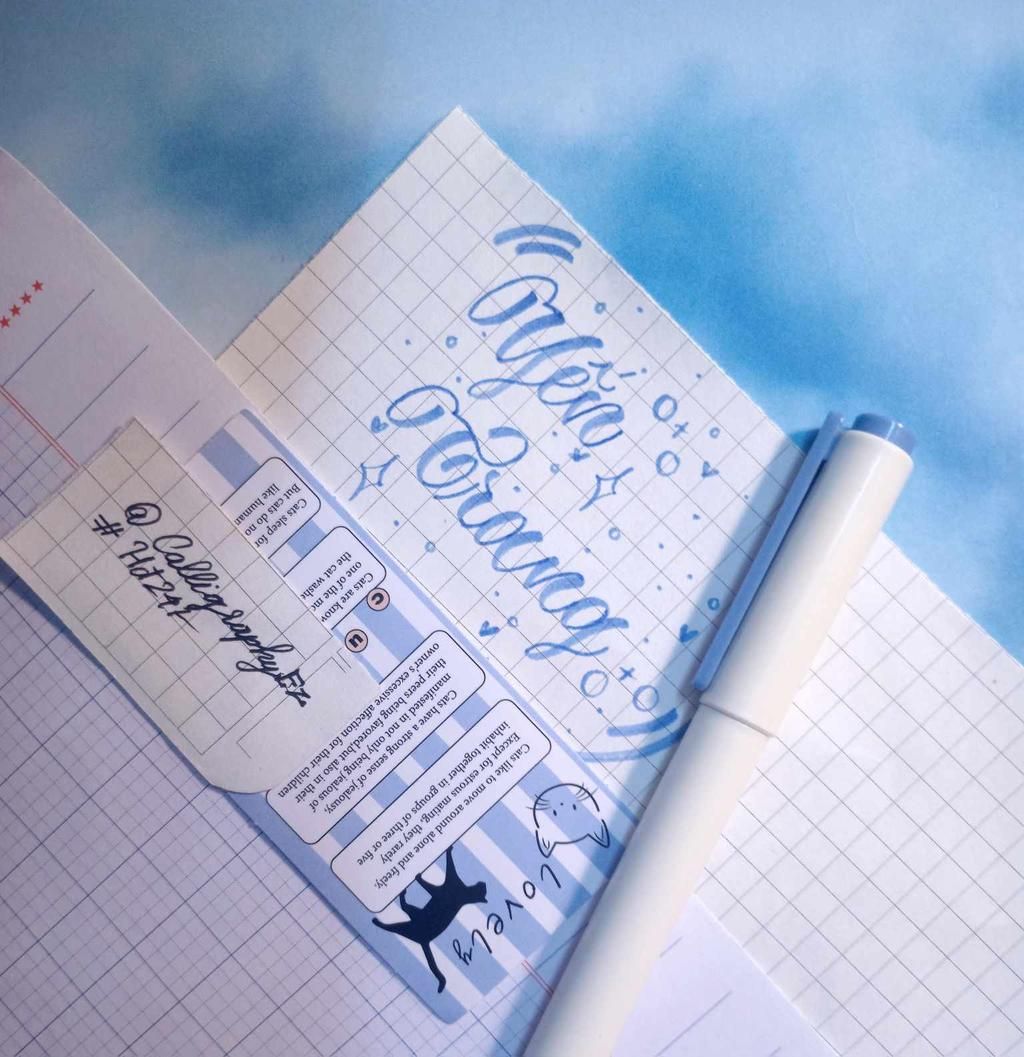 Yến
Trang
@ CalligraphyEz
Cats sleep for
But cats do no
like human
Cats are know
one of the mo
the cat washe
Cats have a strong sense of jealousy,
manifested in not only being jealous of
their peers being favored,but also in their
owner's excessive affection for their children
Cats like to move around alone and freely.
Except for estrous mating, they rarely
inhabit together in groups of three or five
Lovely